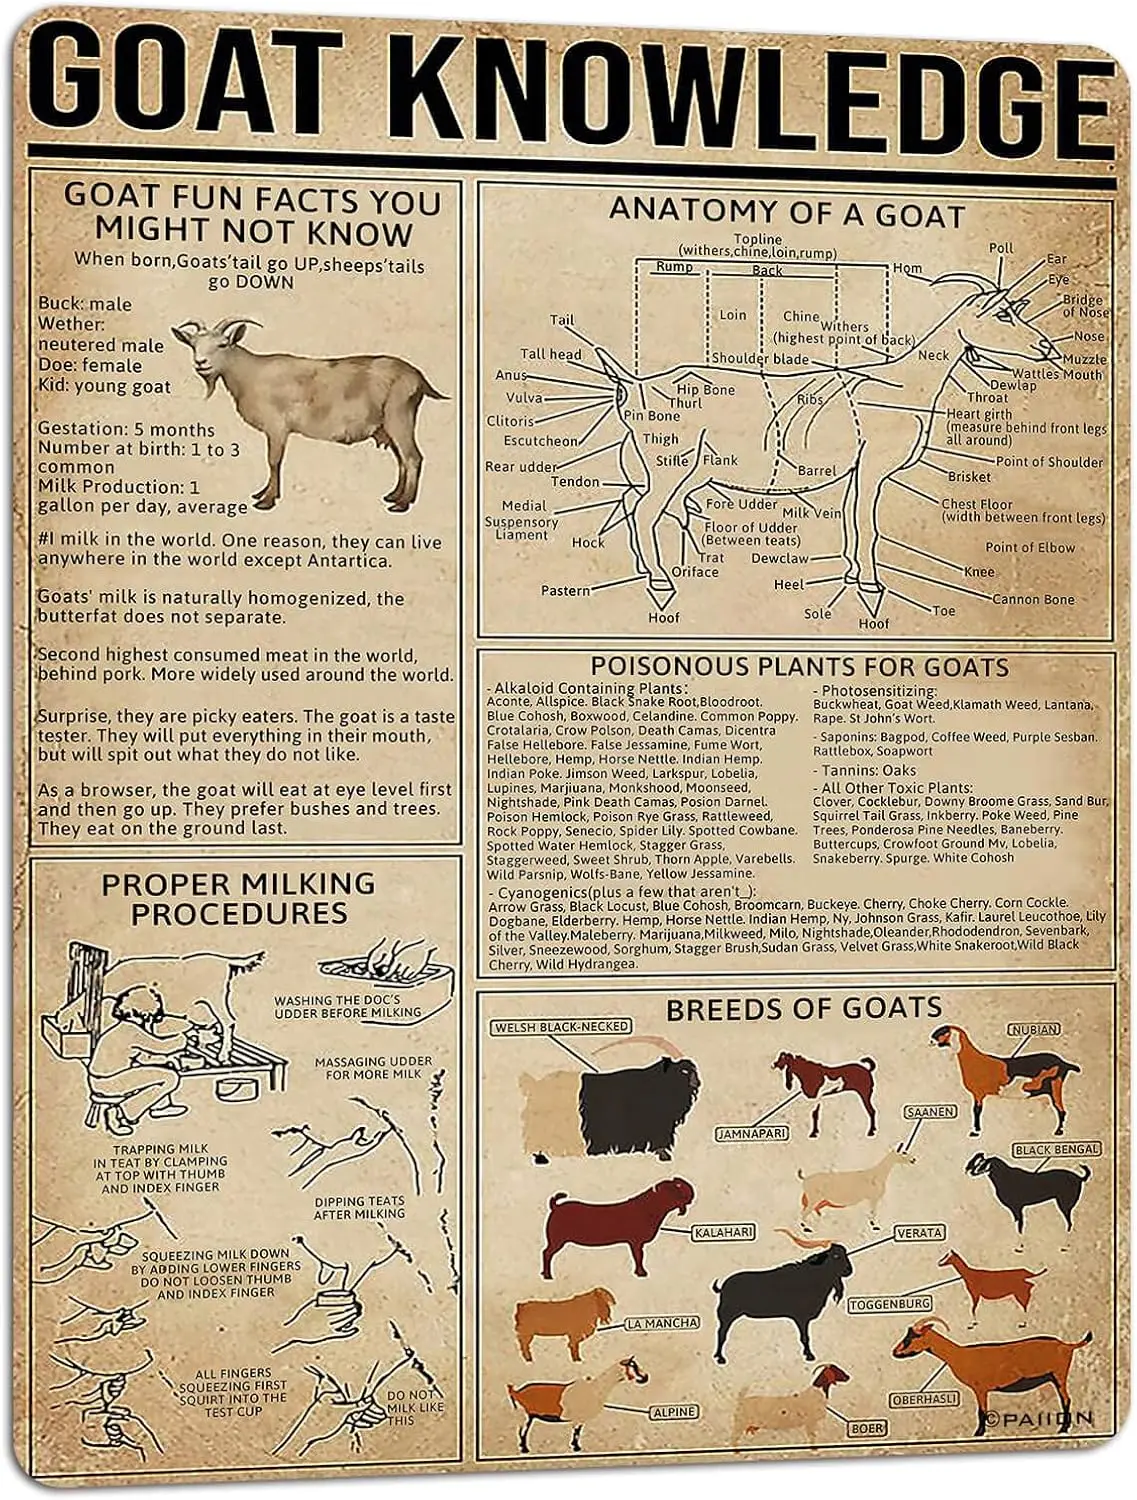 GOAT KNOWLEDGE
GOAT FUN FACTS YOU
MIGHT NOT KNOW
When born,Goats'tail go UP,sheeps'tails
go DOWN
Buck: male
Wether:
neutered male
Doe: female
Kid: young goat
Gestation: 5 months
Number at birth: 1 to 3
common
Milk Production: 1
gallon per day, average
#I milk in the world. One reason, they can live
anywhere in the world except Antartica.
Goats' milk is naturally homogenized, the
butterfat does not separate.
Second highest consumed meat in the world,
behind pork. More widely used around the world.
Surprise, they are picky eaters. The goat is a taste
tester. They will put everything in their mouth,
but will spit out what they do not like.
As a browser, the goat will eat at eye level first
and then go up. They prefer bushes and trees.
They eat on the ground last.
ANATOMY OF A GOAT
Topline
(withers,chine,loin,rump)
Rump
Back
Hom
Poll
Ear
Eye
Bridge
of Nose
Nose
Muzzle
Wattles Mouth
Dewlap
Throat
Neck
Loin
Chine
Withers
(highest point of back)
Shoulder blade
Tail
Tall head
Anus
Vulva
Clitoris
Escutcheon
Rear udder
Tendon
Medial
Suspensory
Liament
Hock
Pastern
Hoof
Hip Bone
Thurl
Pin Bone
Thigh
Stifle
Flank
Ribs
Barrel
Fore Udder
Milk Vein
Floor of Udder
(Between teats)
Trat
Oriface
Dewclaw
Heel
Sole
Hoof
Toe
Heart girth
(measure behind front legs
all around)
Point of Shoulder
Brisket
Chest Floor
(width between front legs)
Point of Elbow
Knee
Cannon Bone
POISONOUS PLANTS FOR GOATS
- Alkaloid Containing Plants:
Aconte, Allspice. Black Snake Root,Bloodroot.
Blue Cohosh, Boxwood, Celandine. Common Poppy.
Crotalaria, Crow Polson, Death Camas, Dicentra
False Hellebore. False Jessamine, Fume Wort,
Hellebore, Hemp, Horse Nettle. Indian Hemp.
Indian Poke. Jimson Weed, Larkspur, Lobelia,
Lupines, Marjiuana, Monkshood, Moonseed,
Nightshade, Pink Death Camas, Posion Darnel.
Poison Hemlock, Poison Rye Grass, Rattleweed,
Rock Poppy, Senecio, Spider Lily. Spotted Cowbane.
Spotted Water Hemlock, Stagger Grass,
Staggerweed, Sweet Shrub, Thorn Apple, Varebells.
Wild Parsnip, Wolfs-Bane, Yellow Jessamine.
- Photosensitizing:
Buckwheat, Goat Weed,Klamath Weed, Lantana,
Rape. St John's Wort.
- Saponins: Bagpod, Coffee Weed, Purple Sesban.
Rattlebox, Soapwort
- Tannins: Oaks
- All Other Toxic Plants:
Clover, Cocklebur, Downy Broome Grass, Sand Bur,
Squirrel Tail Grass, Inkberry. Poke Weed, Pine
Trees, Ponderosa Pine Needles, Baneberry.
Buttercups, Crowfoot Ground Mv, Lobelia,
Snakeberry. Spurge. White Cohosh
- Cyanogenics(plus a few that aren't_):
Arrow Grass, Black Locust, Blue Cohosh, Broomcarn, Buckeye. Cherry, Choke Cherry. Corn Cockle.
Dogbane, Elderberry. Hemp, Horse Nettle. Indian Hemp, Ny, Johnson Grass, Kafir. Laurel Leucothoe, Lily
of the Valley.Maleberry. Marijuana,Milkweed, Milo, Nightshade,Oleander,Rhododendron, Sevenbark,
Silver, Sneezewood, Sorghum, Stagger Brush,Sudan Grass, Velvet Grass,White Snakeroot,Wild Black
Cherry, Wild Hydrangea.
PROPER MILKING
PROCEDURES
WASHING THE DOC'S
UDDER BEFORE MILKING
MASSAGING UDDER
FOR MORE MILK
TRAPPING MILK
IN TEAT BY CLAMPING
AT TOP WITH THUMB
AND INDEX FINGER
DIPPING TEATS
AFTER MILKING
SQUEEZING MILK DOWN
BY ADDING LOWER FINGERS
DO NOT LOOSEN THUMB
AND INDEX FINGER
ALL FINGERS
SQUEEZING FIRST
SQUIRT INTO THE
TEST CUP
DO NOT
MILK LIKE
THIS
BREEDS OF GOATS
WELSH BLACK-NECKED
NUBIAN
JAMNAPARI
SAANEN
BLACK BENGAL
KALAHARI
VERATA
TOGGENBURG
LA MANCHA
OBERHASLI
ALPINE
BOER
©PAIION